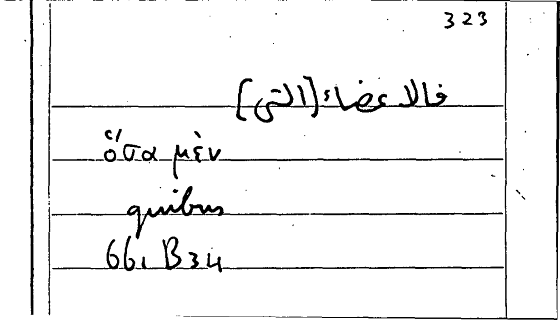 323
فالاعضاء [التى]
ὅσα μὲν
quibus
661 B34